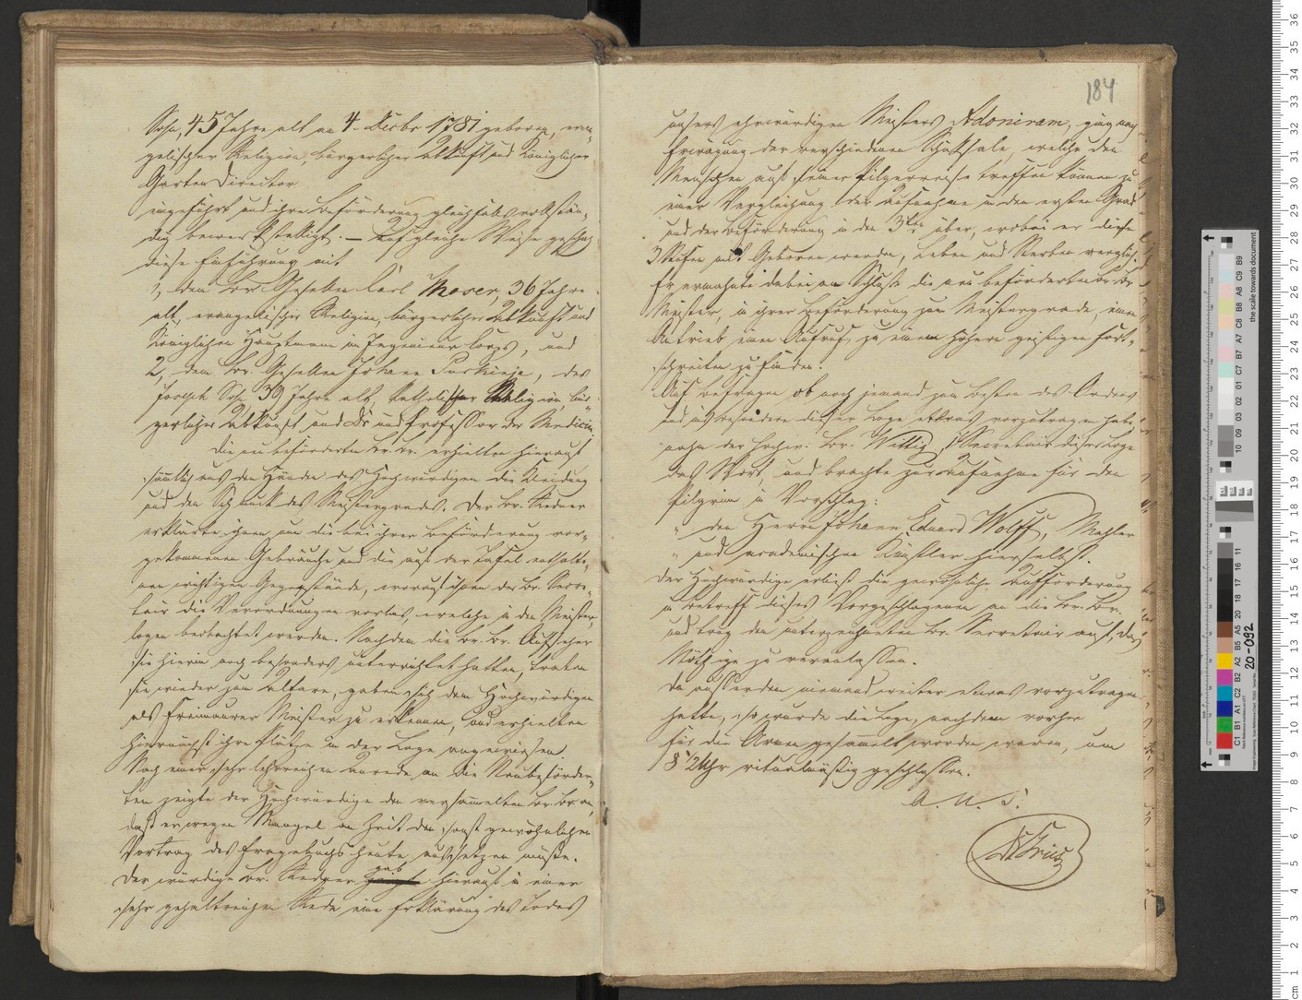 Sohn, 45 Jahre alt am 4. Decbr 1781 geboren, evan-
gelischer Religion, bürgerlicher Abkunft und Königlicher
Garten Director
eingeführt und ihre Beförderung gleichfalls vollstän-
dig bewerkstelligt. — Auf gleiche Weise geschah
diese Einführung mit
1, dem Br. Gesellen Carl Moser, 36 Jahre
alt, evangelischer Religion, bürgerlicher Abkunft und
Königlichen Hauptmann im Ingenieur Corps, und
2, dem Br. Gesellen Johann Purkinje, des
Joseph Sohn 39 Jahre alt, katholischer Religion, bür-
gerlicher Abkunft und Dr und Professor der Medicin.
Die neubeförderten Br. Br. erhielten hierauf
sämtlich aus den Händen des Hochwürdigen die Kleidung
und den Schmuck des Meistergrades. Der Br. Redner
erklärte ihnen die bei ihrer Beförderung vor-
gekommenen Gebräuche und die auf der Tafel enthalte-
nen wichtigen Gegenstände, worauf ihnen der Br. Secre-
tair die Verordnungen vorlas, welche in den Meister-
logen beobachtet werden. Nachdem die Br. Br. Aufseher
sie hierin noch besonders unterrichtet hatten, traten
sie wieder zum Altare, gaben sich dem Hochwürdigen
als Freimaurer Meister zu erkennen, und erhielten
hiernächst ihre Plätze in der Loge angewiesen.
Nach einer sehr lehrreichen Anrede an die Neubeförder-
ten zeigte der Hochwürdige den versammelten Br. Br. an
daß er wegen Mangel an Zeit den sonst gewöhnlichen
Vortrag des Fragebuchs heute aussetzen müße.
Der würdige Br. Redner gab hierauf in einer
sehr gehaltreichen Rede eine Erklärung des Todes
184
unsers ehrwürdigen Meisters Adoniram, ging nach
Erwägung der verschiedenen Schicksale, welche den
Menschen auf seiner Pilgerreise treffen können zu
einer Vergleichung der Aufnahme in den ersten Grad
und der Beförderung in den 3ten über, wobei er diese
3 Reisen mit Geboren werden, Leben und Sterben verglich.
Er ermahnte dabei am Schluß die neu beförderten Br. Br.
Meister, in ihrer Beförderung zum Meistergrade, einen
Antrieb einen Aufruf zu einem höhern geistigen Fort-
schreiten zu finden.
Auf Befragen ob noch jemand zum Besten des Ordens
und insbesondere dieser Loge etwas vorzutragen habe,
nahm der Hochw. Br. Wittig, Secretair dieser Loge
das Wort und brachte zur Aufnahme für den
Pilgrim in Vorschlag:
" den Herrn Johann Eduard Wolff, Mahler
" und academischen Künstler hierselbst.
Der Hochwürdige erließ die gewöhnliche Aufforderung
in Betreff dieses Vorgeschlagenen an die Br. Br.
und trug dem unterzeichneten Br. Secretair auf, das
Nöthige zu veranlassen.
Da außerdem niemand weiter etwas vorzutragen
hatte, so wurde die Loge, nachdem vorher
für die Armen gesammelt worden waren, um
8 ½ Uhr ritualmäßig geschlossen.
a. u. s.